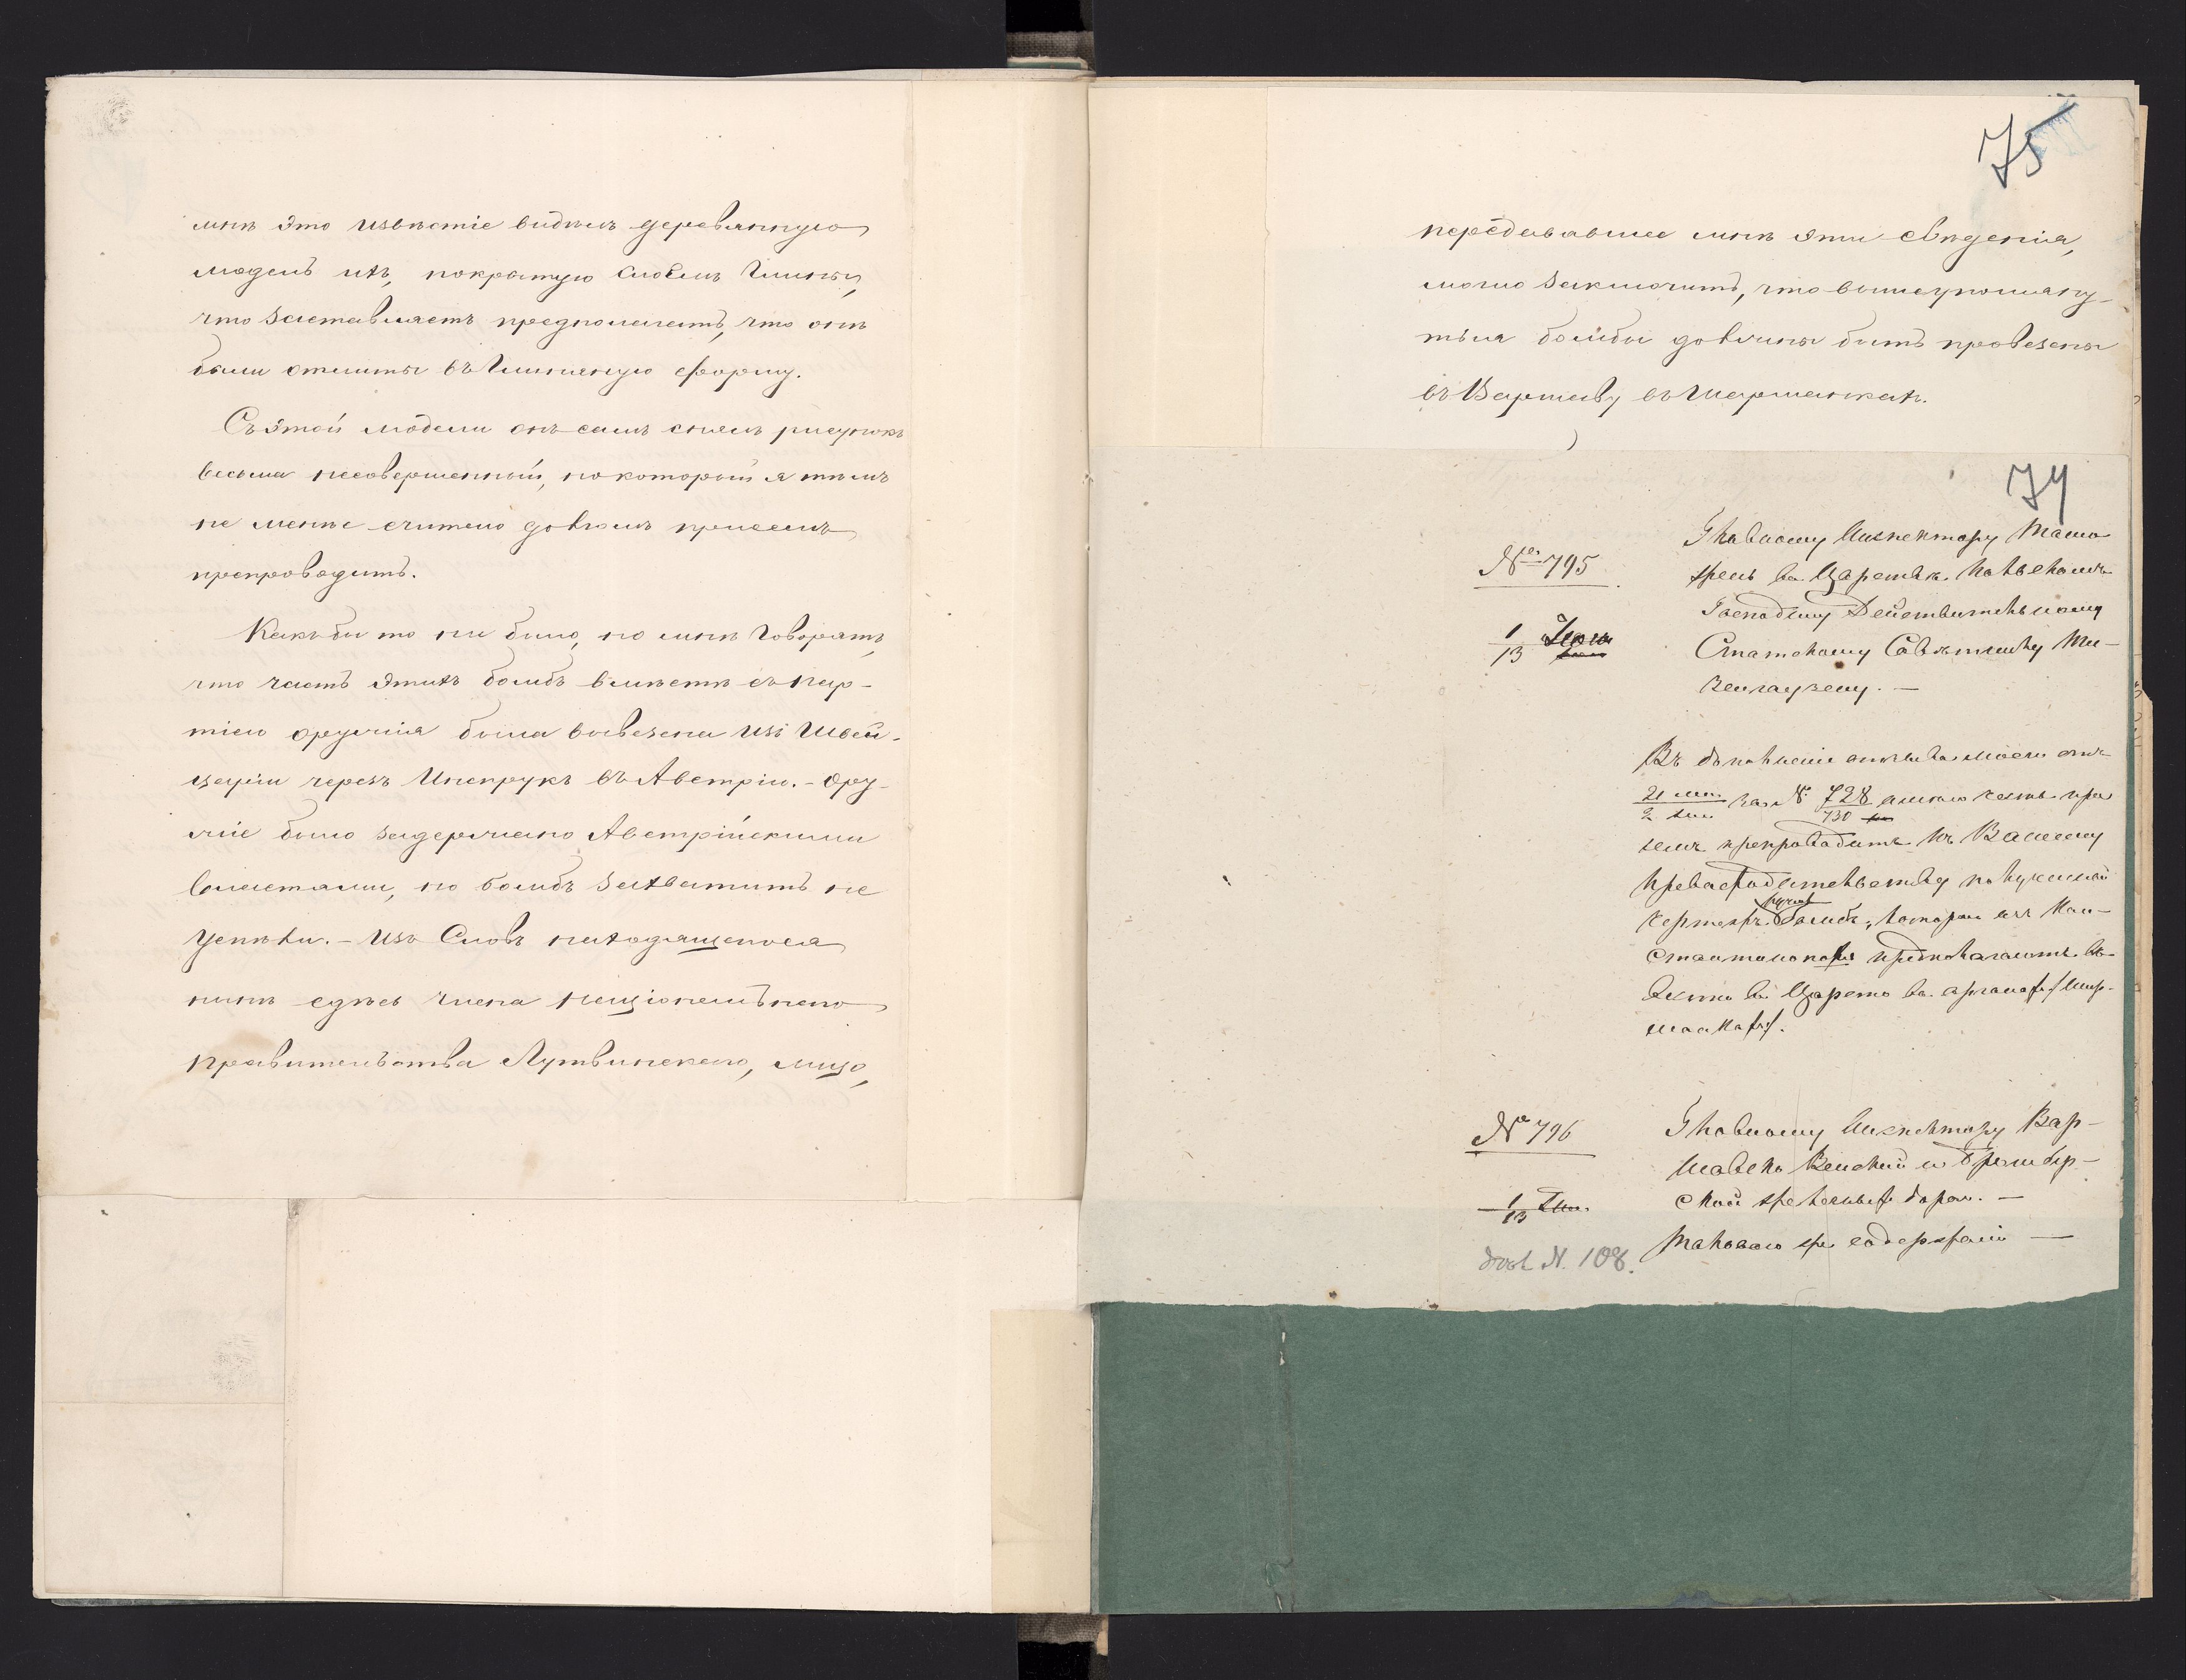 мнѣ это извѣстіе видѣлъ деревянную
модель ихъ, покрытую слоемъ глины,
что заставляетъ предполагать, что онѣ
были отлиты въ глиняную форму.
Съ этой модели онъ самъ снялъ рисунокъ
весьма несовершенный, но который я тѣмъ
не менѣе считаю долгомъ присемъ
препроводить.
Какъ бы то ни было, но мнѣ говорятъ,
что часть этихъ бомбъ вмѣстѣ съ пар-
тіею оружія была вывезена изъ Швей-
царіи черезъ Инспрукъ въ Австрію. - Ору-
жіе было задержано Австрійскими
властями, но бомбъ захватить не
успѣли. - Изъ словъ находящагося
нынѣ здѣсь члена націонельнаго
правительства Лутвинскаго, лицо,
75
передававшее мнѣ эти свѣденія,
могло заключить, что вышеупомяну-
тыя бомбы должны быть провезены
въ Варшаву въ шарманкахъ.
74
№ 795
1/13 Іюня
Главному Инспектору Тамо-
жень въ Царствѣ Польскомъ
Господину Дѣйствительному
Статскому Совѣтнику Ти-
зенгаузену. —
Въ дополненіе отзыва моего отъ
21 / 2 за № 728/730 имѣю честь при
семъ препроводить къ Вашему
Превосходительству полученный
чертежъ бомбъ, которыя изъ Кон-
стантинополя предполагаютъ
ввезти въ Царство въ органахъ / шар-
манкахъ /.
№ 796
1/13
Главному Инспектору Вар-
шавско Вѣнской и Бромбер-
ской желѣзныхъ дорогъ. —
Таковаго же содержанія —
dool N. 108.